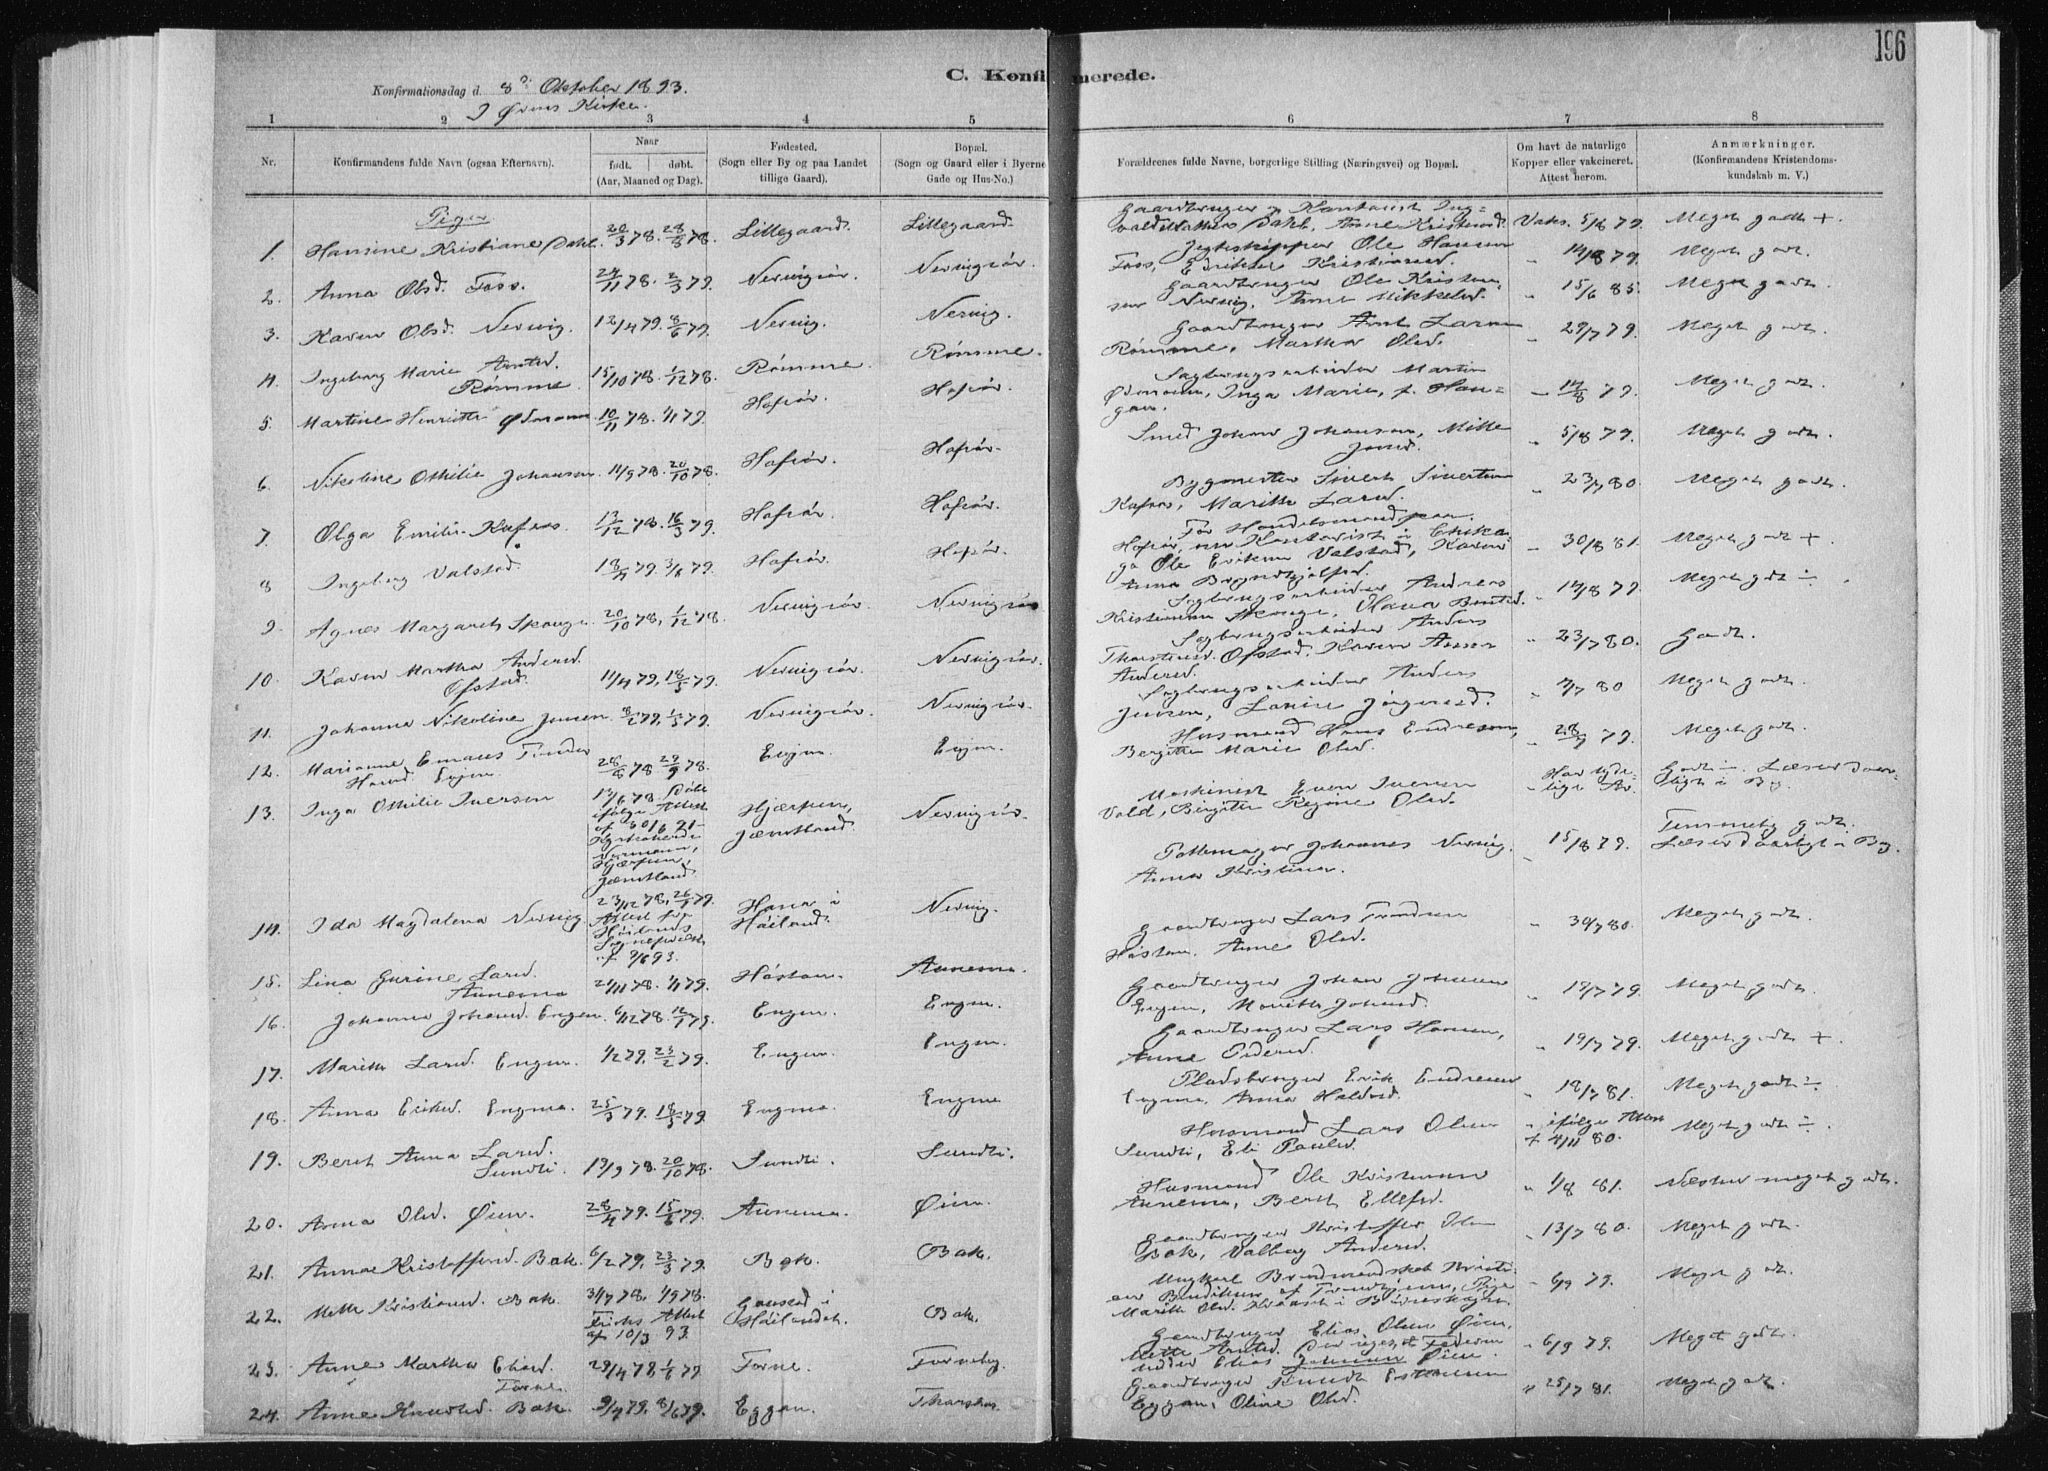 196
C. Konfirmerede.
Konfirmationsdag d. 8de Oktober 1893.
I Ørens Kirke.
1 2 3 4 5 6 7 8
Nr.
Konfirmandens fulde Navn (ogsaa Efternavn).
Naar
født. døbt.
(Aar, Maaned og Dag).
Fødested.
(Sogn eller By og paa Landet
tillige Gaard).
Bopæl.
(Sogn og Gaard eller i Byerne
Gade og Hus-No.)
Forældrenes fulde Navne, borgerlige Stilling (Næringsvei) og Bopæl.
Om havt de naturlige
Kopper eller vakcineret.
Attest herom.
Anmærkninger.
(Konfirmandens Kristendoms-
kundskab m. V.)
Piger
1. Hansine Kristiane Dahl. 20/3 78. 28/8 78. Lillegaard. Lillegaard.
Vaks. 5/8 79. Meget godt +.
2. Anna Olsd. Foss. 24/11 78. 2/3 79. Nervigsør. Nervigsør.
Jegteskipper Ole Hansen
Foss, Kristiansd. " 14/8 79. Meget godt.
3. Karen Olsd. Nervig. 12/4 79. 8/6 79. Nervig. Nervig.
Gaardbruger Ole Kristen-
sen Nervig, Anne Mikkelsd. " 15/6 85. Meget godt.
4. Ingeborg Marie Arntsd.
Rømme. 15/10 78. 1/12 78. Rømme. Rømme.
Gaardbruger Arnt Larsen
Rømme, Martha Olsd. " 29/7 79. Meget godt.
5. Martine Henriette 10/11 78. 1/1 79. Hofsør. Hofsør
Sagbrugsarbeider Martin
Inga Marie, f. Han-
" 14/8 79. Meget godt.
6. Nikoline Othilie Johansen 11/9 78. 20/10 78. Hofsør. Hofsør.
Smed Johan Johansen, Mille
Jonsd. " 5/8 79. Meget godt.
7. Olga Emilie Kafsaas. 13/12 78. 16/3 79. Hofsør. Hofsør.
Bygmester Sivert Sivertsen
Marith Larsd. " 23/7 80. Meget godt.
8 Ingeborg Valstad. 18/4 79. 3/8 79. Hofsør. Hofsør.
Før Handelsmand paa
Hofsør, nu Kontorist i Chika-
go Ole Eriksen Valstad, Karen
Anna Bryndhjelsd. " 30/8 81. Meget godt +
9. Agnes Margareth Skauge. 20/10 78. 1/12 78. Nervigsør. Nervigsør
Sagbrugsarbeider Andreas
Kristiansen Skauge, Olava Berntsd. " 14/8 79 Meget godt ÷
10. Karen Martha Andersd.
Ofstad. 11/4 79. 18/5 79. Nervigsør. Nervigsør.
Sagbrugsarbeider Anders
Thorstensd. Ofstad. Karen Anna
Andersd. " 23/7 80. Godt.
11. Johanna Nikoline Jensen. 79. 79. Nervigsør. Nervigsør.
Sagbrugsarbeider Anders
Jensen, Lovise Jørgensd. 80 Meget godt.
12. Marianne
Hansd. Evjen. 28/8 78 29/9 78. Evjen. Evjen.
Husmand Hans Endresen,
Bergitte Marie Olsd. " 79. Meget godt.
13. Inga Othilie Iversen 78. Døbt
ifølge Attest
af 30/6 91
Normann,
Hjærpen,
Jæmtland. Hjærpen,
Jæmtland. Nervigsør.
Maskinist Even Iversen
Vold, Birgitte Regine Olsd. Har tyde-
lige Ar. Godt ÷. Læser daar-
ligt i Bog.
14. Ida Magdalena Nervig. 23/12 78, 26/1 79.
Attest fra
Høilands
Sognepræst
af 9/6 93. Hana i
Høiland. Nervig.
Pottemager Johannes Nervig.
Anna Kristine. 15/8 79. Temmelig godt.
Læser daarligt i Bog.
15. Lina Gurine Larsd.
Aunemo 21/11 78. 1/1 79. Høstom. Aunemo.
Gaardbruger Lars Trondsen
Høstom, Anne Olsd. " 30/7 80. Meget godt.
16. Johanna Johansd. Engen. 6/12 78. 12/1 79. Engen. Engen.
Gaardbruger Johan Johansen
Engen, Marith Johansd. " 19/7 79. Meget godt.
17. Marith Larsd. Engen. 1/2 79. 23/2 79. Engen. Engen.
Gaardbruger Lars Hansen,
Anne Pedersd. " 19/7 79. Meget godt +.
18. Anna Eriksd. Engmo. 25/3 79. 18/5 79. Engmo. Engmo
Pladsbruger Erik Endresen
Engmo, Anna Halvorsd. " 18/7 81. Meget godt ÷.
19. Berit Anna Larsd.
Sundli. 19/9 78. 20/10 78. Sundli. Sundli.
Husmand Lars Olsen
Sundli, Eli Paulsd. " ifølge Attest
4/11 80. Meget godt ÷.
20. Anna Olsd. Øien. 28/4 79. 15/6 79. Aunemo. Øien.
Husmand Ole Kristensen
Aunemo, Berit Ellefsd. " 1/8 81. Næsten meget godt.
21. Anna Kristoffersd. Bak. 6/2 79. 23/3 79. Bak. Bak.
Gaardbruger Kristoffer Olsen
Bak, Valborg Andersd. " 13/7 80. Meget godt.
22. Mette Kristiansd. Bak. 3/7 78. 1/9 78.
Attest
af 10/3 93.
Høilandet. Bak.
Ungkarl Kristi-
an Bendiksen af Trondhjem, Pige
Marith Olsd. " 6/9 79. Meget godt.
23. Anne Martha Eliasd.
Forne. 29/4 78. 1/6 79 Forne. Fornebog.
Gaardbruger Elias Olsen Øien,
Mette Arntsd.
Elias Johnsen Øien. " 6/9 79. Meget godt.
24. Anne Knudsd. Bak. 9/4 79. 8/6 79. Eggan. Thorshus.
Gaardbruger Knudt Estensen
Eggan, Oline Olsd. " 25/7 81. Meget godt.